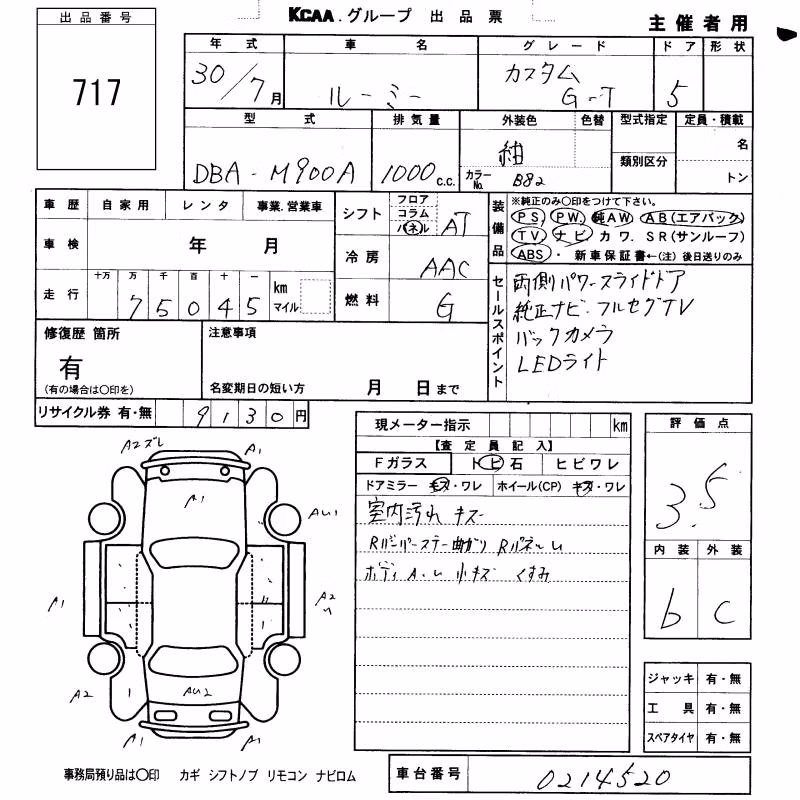 KCAA.グループ 出品票
主催者用
出品番号
717
年式 車名 グレード ドア 形状
30/7月 ルーミー カスタム G-T 5
型式 排気量 外装色 色替 型式指定 定員・積載
DBA-M900A 1000c.c. 紺 類別区分 名
カラーNo. B82 トン
車歴 自家用 レンタ 事業.営業車
車検 年 月
走行 十万 万 千 百 十 一 km マイル
75045
シフト フロア コラム パネル AT
冷房 AAC
燃料 G
装備品
※純正のみ○印をつけて下さい。
PS PW 純AW AB(エアバック)
TV ナビ カワ.SR(サンルーフ)
ABS・ 新車保証書←(注)後日送りのみ
セールスポイント
両側パワースライドドア
純正ナビ・フルセグTV
バックカメラ
LEDライト
修復歴 箇所
有
(有の場合は○印を)
注意事項
名変期日の短い方 月 日まで
リサイクル券 有・無 9130円
現メーター指示 km
【査定員記入】
Fガラス トビ石 ヒビワレ
ドアミラー キズ・ワレ ホイール(CP) キズ・ワレ
室内汚れ キズ
Rバンパーステー曲がり RパネルU
ボディA.U 小キズ くすみ
評価点
3.5
内装 外装
b c
ジャッキ 有・無
工具 有・無
スペアタイヤ 有・無
A2ズレ A1
A1
AU1
A1 A2
A2 AU2
A1 A1
事務局預り品は○印 カギ シフトノブ リモコン ナビロム
車台番号 0214520